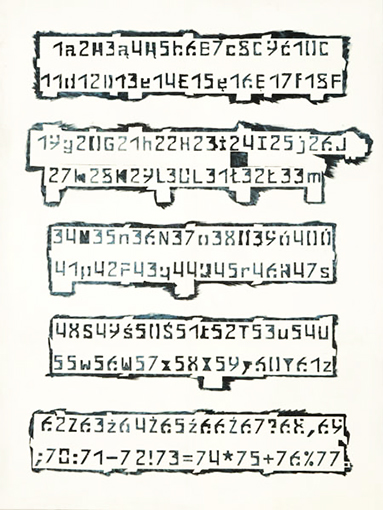 1a2A3ą4Ą5b6B7c8C9ć10Ć
11d12D13e14E15ę16Ę17f18F
19g20G21h22H23i24I25j26J
27k28K29l30L31ł32Ł33m
34M35n36N37o38O39ó40Ó
41p42P43q44Q45r46R47s
48S49ś50Ś51t52T53u54U
55w56W57x58X59y60Y61z
62Z63ż64Ż65ź66Ź67?68,69
;70:71-72!73=74*75+76%77